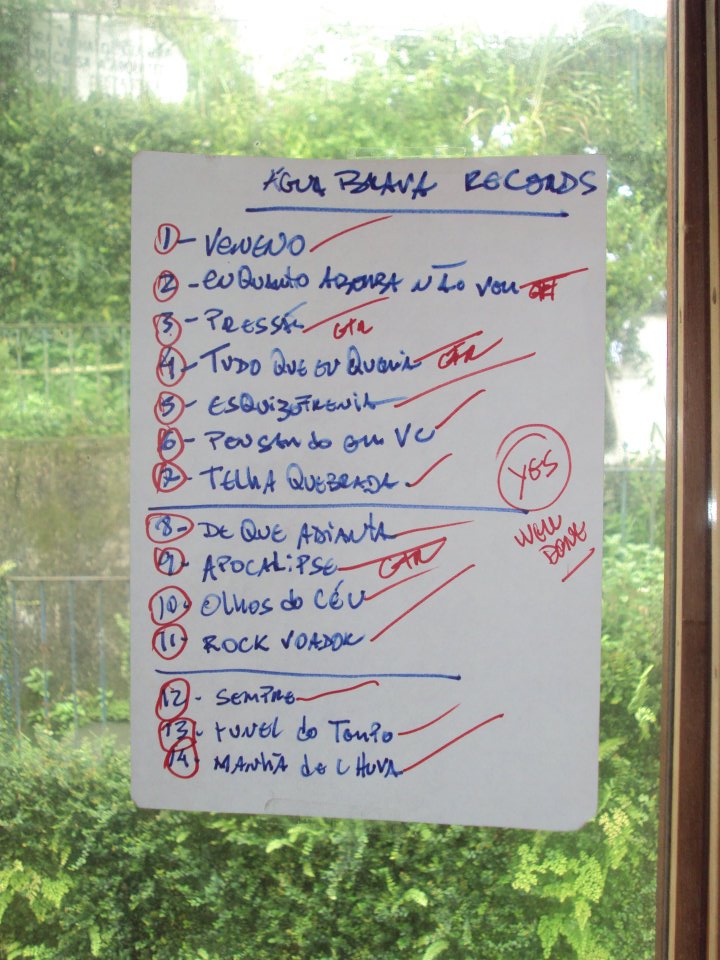 ÁGUA BRAVA RECORDS
1- VENENO
2- ENQUANTO AGORA NÃO VEM GTR
3- PRESSÃO GTR
4- TUDO QUE EU QUERIA GTR
5- ESQUIZOFRENIA
6- PENSANDO EM VC
7- TELHA QUEBRADA
8- DE QUE ADIANTA
9- APOCALIPSE GTR
10- OLHOS do CÉU
11- ROCK VOADOR
12- SEMPRE
13- TUNEL do TEMPO
14- MANHÃ de CHUVA
YES
WELL
DONE